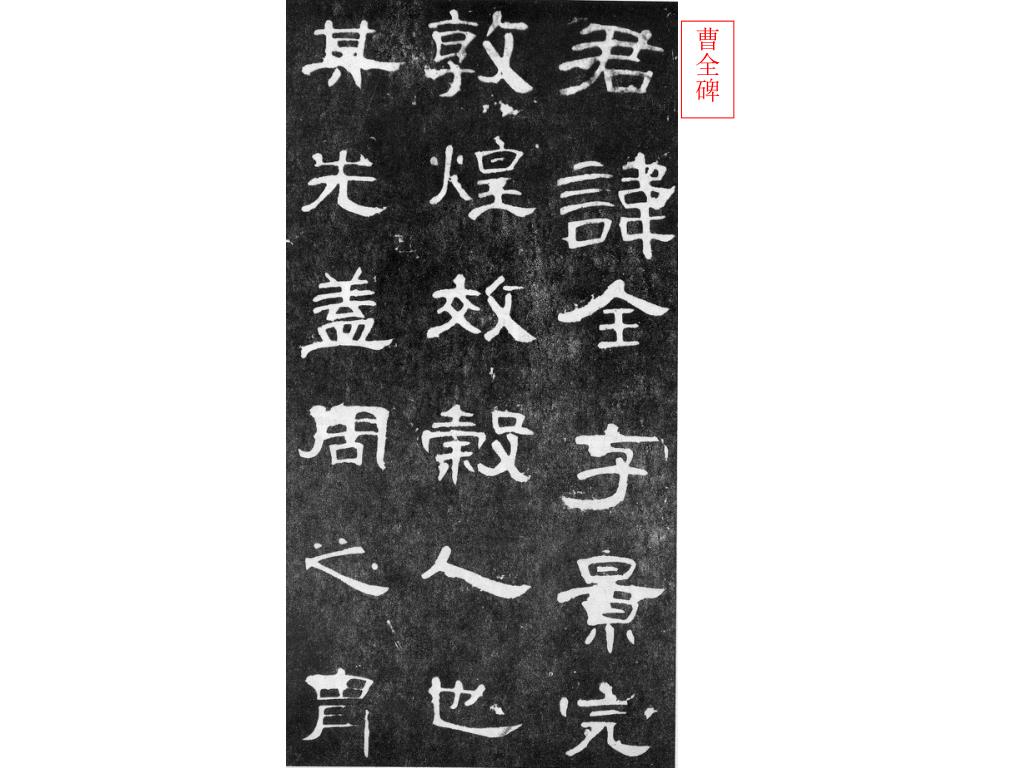 曹全碑
君諱全字景完
敦煌效穀人也
其先蓋周之胄